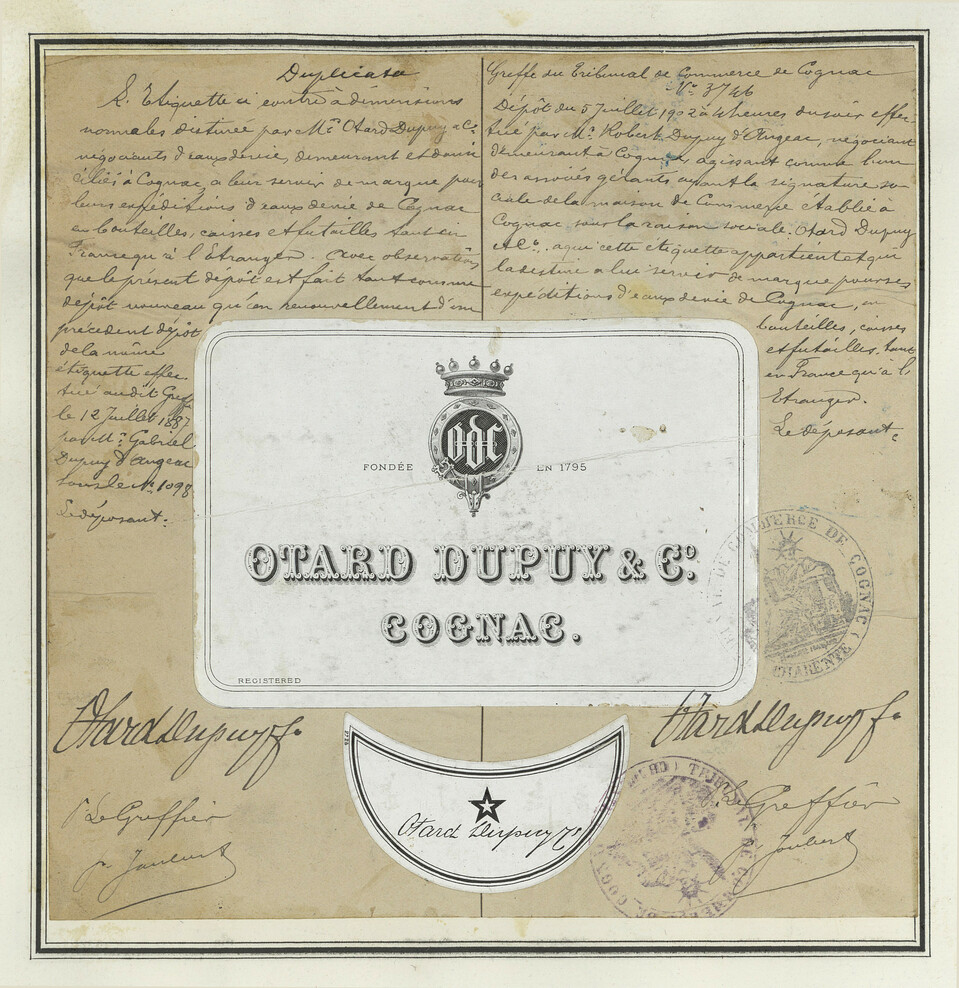 Duplicata
L'Etiquette ci contre à dimensions
normales est usée par Mrs Otard Dupuy & Co.
négociants d'eaux de vie, demeurant et domi
ciliés à Cognac, a leur servir de marque pour
leurs expéditions d'eaux de vie de Cognac
en bouteilles, caisses et futailles tant en
France qu'à l'Etranger. Avec observations
que le présent dépôt est fait tant comme
dépôt nouveau qu'en renouvellement d'un
précédent dépôt
de la même
étiquette effec
tué au dit Greffe
le 12 Juillet 1887
par Mr. Gabriel
Dupuy d'Angeac
sous le No. 1098
Le déposant.
Greffe du Tribunal de Commerce de Cognac
No. 3746
Dépôt du 5 Juillet 1902 à 4 heures du soir effec-
tué par Mr. Robert Dupuy d'Angeac, négociant
demeurant à Cognac, agissant comme l'un
des associés gérants ayant la signature so-
ciale de la maison de Commerce établie à
Cognac sous la raison sociale: Otard Dupuy
& Co., a qui cette étiquette appartient et qui
la destine a lui servir de marque pour ses
expéditions d'eaux de vie de Cognac, en
bouteilles, caisses
et futailles, tant
en France qu'à l'
Etranger.
Le déposant.
ODC
FONDÉE EN 1795
OTARD DUPUY & Co.
COGNAC.
REGISTERED
COMMERCE DE COGNAC
CHARENTE
Otard Dupuy &c.
Otard Dupuy &c.
Otard Dupuy & Co
pr Le Greffier
p. Joubert
Le Greffier
p. Joubert